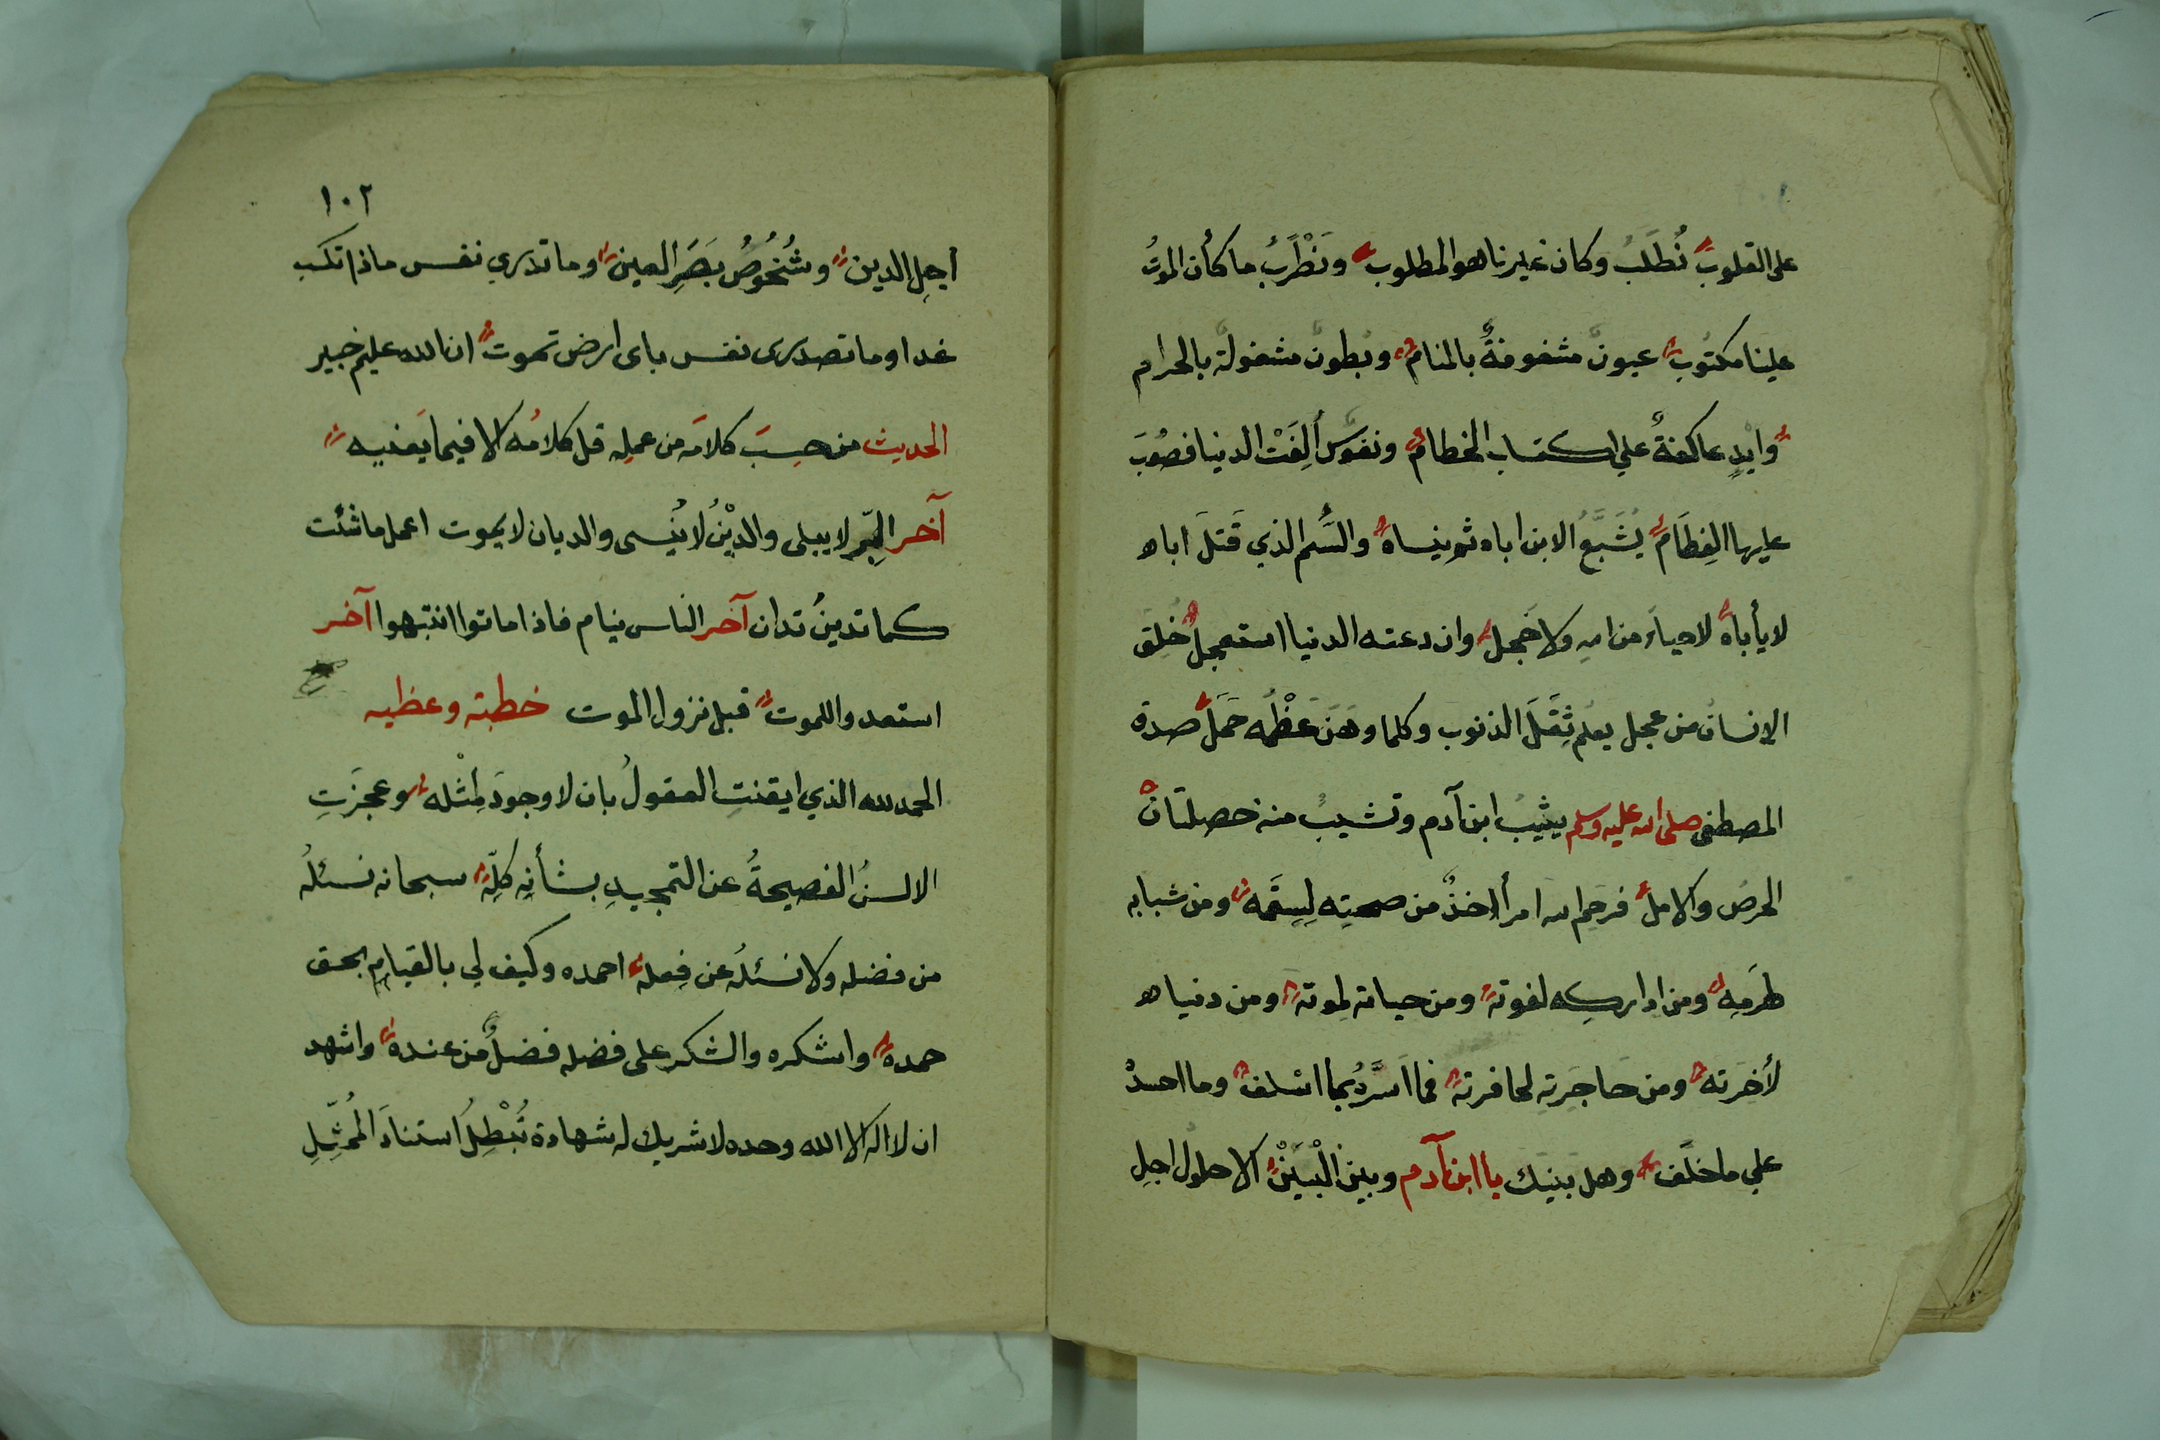 على القلوب نُطلَبُ وكان غيرنا هو المطلوب ونَطْرَبُ ما كأن الموتُ
علينا مكتوب عيون مشغوفةٌ بالمنام وبطون مشغولة بالحرام
وايدٍ عاكفةٌ علي اكتساب الحطام ونفوس أَلِفَتْ الدنيا فصَعُبَ
عليها الفِطَام يُشَيَّعُ الابن اباه ثم ينساه والسُّم الذي قَتلَ اباه
لا يأباه لا حياءَ من امرِ ولا خَجل وان دعته الدنيا استعجل خُلِقَ
الإنسان من عجل يعلم ثِقَلَ الذنوب وكلما وَهَنَ عَظْمُه حَمَلَ صدق
المصطفى صلى الله عليه وسلم يشيبُ ابن آدم وتشيب منه خصلتان
الحرصُ والامل فرحِم الله امرأ اخذ من صحتِه لِسِقَمه ومن شبابه
لهَرَمِه ومن ادراكِه لفوته ومن حياته لموته ومن دنياه
لأخرته ومن حاجَرتِه لحافرته فما اَسَرَّهُ بما اسلف وما احسد
علي ما خلَّف وهل بينك يا ابن آدم وبين الْبَيَنْ الا حلول اجل
١٠٢
أجلِ الدين وشُخُوصُ بَصَرِ العين وما تدري نفس ماذا تكسب
غدا وما تصدرى نفس باى ارض تموت ان الله عليم خبير
الحديث من حسِبَ كلامَه من عملِه قل كلامُه الا فيما يَعنيه
آخر البِّر لا يبلى والدِيْنُ لا يُنسى والديان لا يموت اعمل ما شئت
كما تدينُ تدان آخر الناس نيام فاذا ماتوا انتبهوا آخر
استعدوا للموت قبل نزول الموت خطبته وعظيه
الحمد لله الذي ايقنتِ العقولُ بان لا وجودَ لِمثْله وعجزَتِ
الالسنُ الفصيحةُ عن التمجيدِ بشأنِه كلِّهِ سبحانه نسئلُه
من فضله ولا نسئلُه عن فِعله احمده وكيف لي بالقيامِ بحق
حمده واشكره والشكر على فضله فضلٌ من عنده واشهد
ان لا اله الا الله وحده لا شريك له شهادة تُبْطِلُ استنادَ المُمثِّلِ